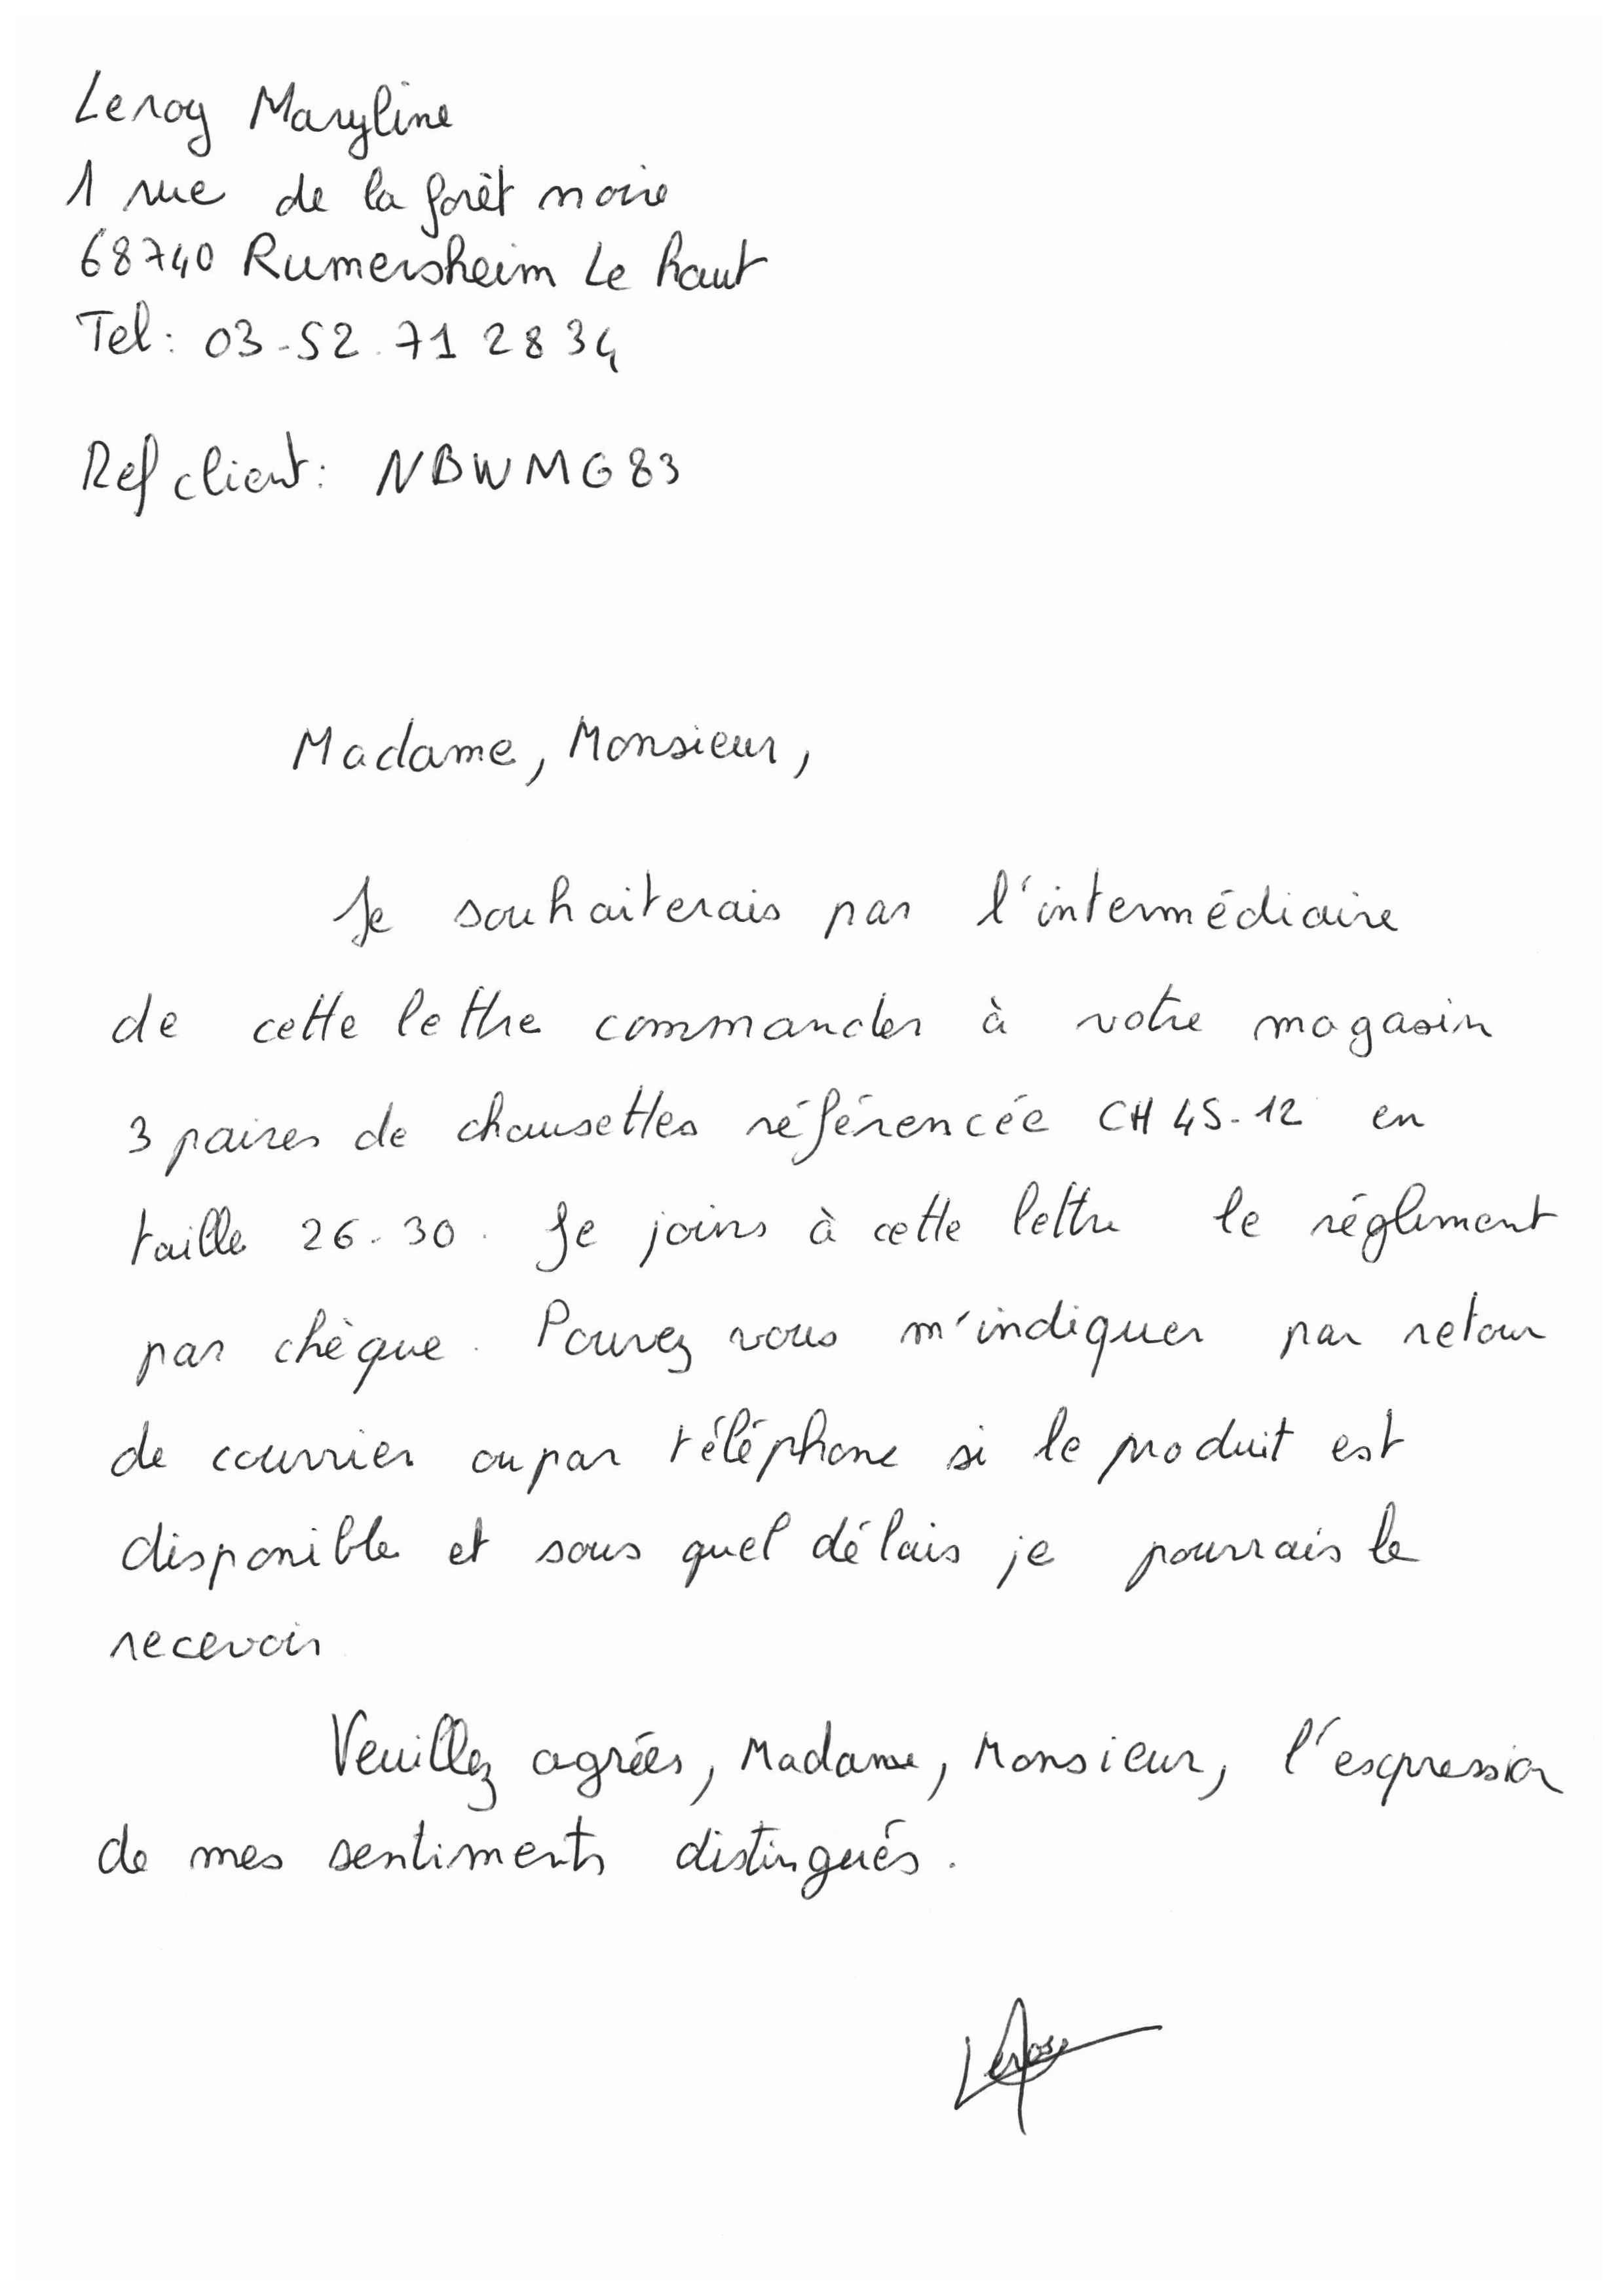 Leroy Maryline
1 rue de la forêt noire
68740 Rumersheim Le haut
Tel: 03-52.71 28 34
Ref client: NBWMG83
Madame, Monsieur,
Je souhaiterais par l'intermédiaire
de cette lettre commander à votre magasin
3 paires de chaussettes référencée CH45-12 en
taille 26-30. Je joins à cette lettre le réglement
par chèque. Pouvez vous m'indiquer par retour
de courrier ou par téléphone si le produit est
disponible et sous quel délais je pourrais le
recevoir
Veuillez agréer, Madame, Monsieur, l'expression
de mes sentiments distingués.
Leroy